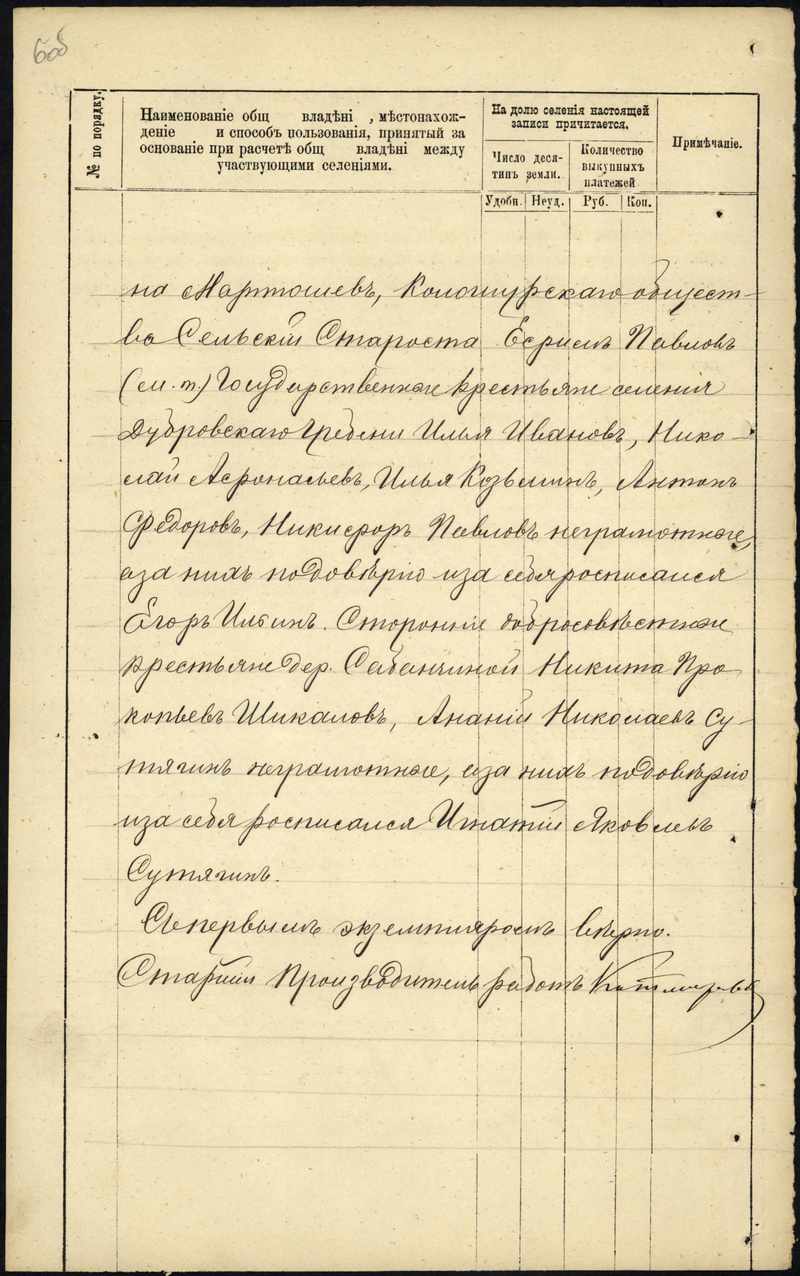 № по порядку.
Наименованіе общ владѣні , мѣстонахож-
деніе и способъ пользованія, принятый за
основаніе при расчетѣ общ владѣні между
участвующими селеніями.
На долю селенія настоящей
записи причитается.
Число деся-
тинъ земли.
Количество
выкупныхъ
платежей
Примѣчаніе.
Удобн. Неуд. Руб. Коп.
на Мартюшевъ, Кологурскаго общест-
ва Сельскій Староста Ефримъ Павловъ
(м. п.) Государственные крестьяне селенія
Дубровскаго Гребени Илья Ивановъ, Нико-
лай Афонасьевъ, Илья Козьминъ, Антонъ
Федоровъ, Никифоръ Павловъ неграмотные,
а за нихъ по довѣрію и за себя росписался
Егоръ Ильинъ. Сторонніе добросовѣстные
крестьяне дер. Сабанчиной Никита Про
копьевъ Шикаловъ, Ананій Николаевъ Су-
тягинъ неграмотные, а за нихъ по довѣрію
и за себя росписался Игнатій Яковлевъ
Сутягинъ.
Съ первымъ экземпляромъ вѣрно.
Старшій Производитель работъ